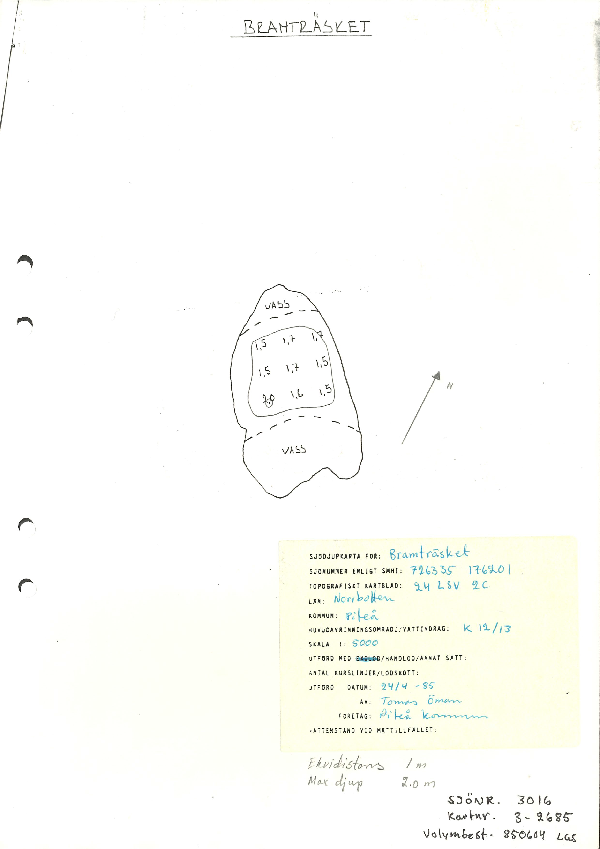 BRAMTRÄSKET
VASS
1,5 1,7 1,7
1,5 1,7 1,5
2,0 1,6 1,5
VASS
SJÖDJUPKARTA FÖR: Bramträsket
SJÖNUMMER ENLIGT SMHI: 726335 176201
TOPOGRAFISKT KARTBLAD: 24 L SV 2C
LÄN: Norrbotten
KOMMUN: Piteå
HUVUDAVRINNINGSOMRÅDE/VATTENDRAG: K 12/13
SKALA 1: 5000
UTFÖRD MED EKOLOD/HANDLOD/ANNAT SÄTT:
ANTAL KURSLINJER/LODSKOTT:
UTFÖRD DATUM: 24/4 -85
AV: Tomas Öman
FÖRETAG: Piteå kommun
VATTENSTÅND VID MÄTTILLFÄLLET:
Ekvidistans 1 m
Max djup 2.0 m
SJÖNR. 3016
Kartnr. 3-2685
Volymbest. 850604 LGS